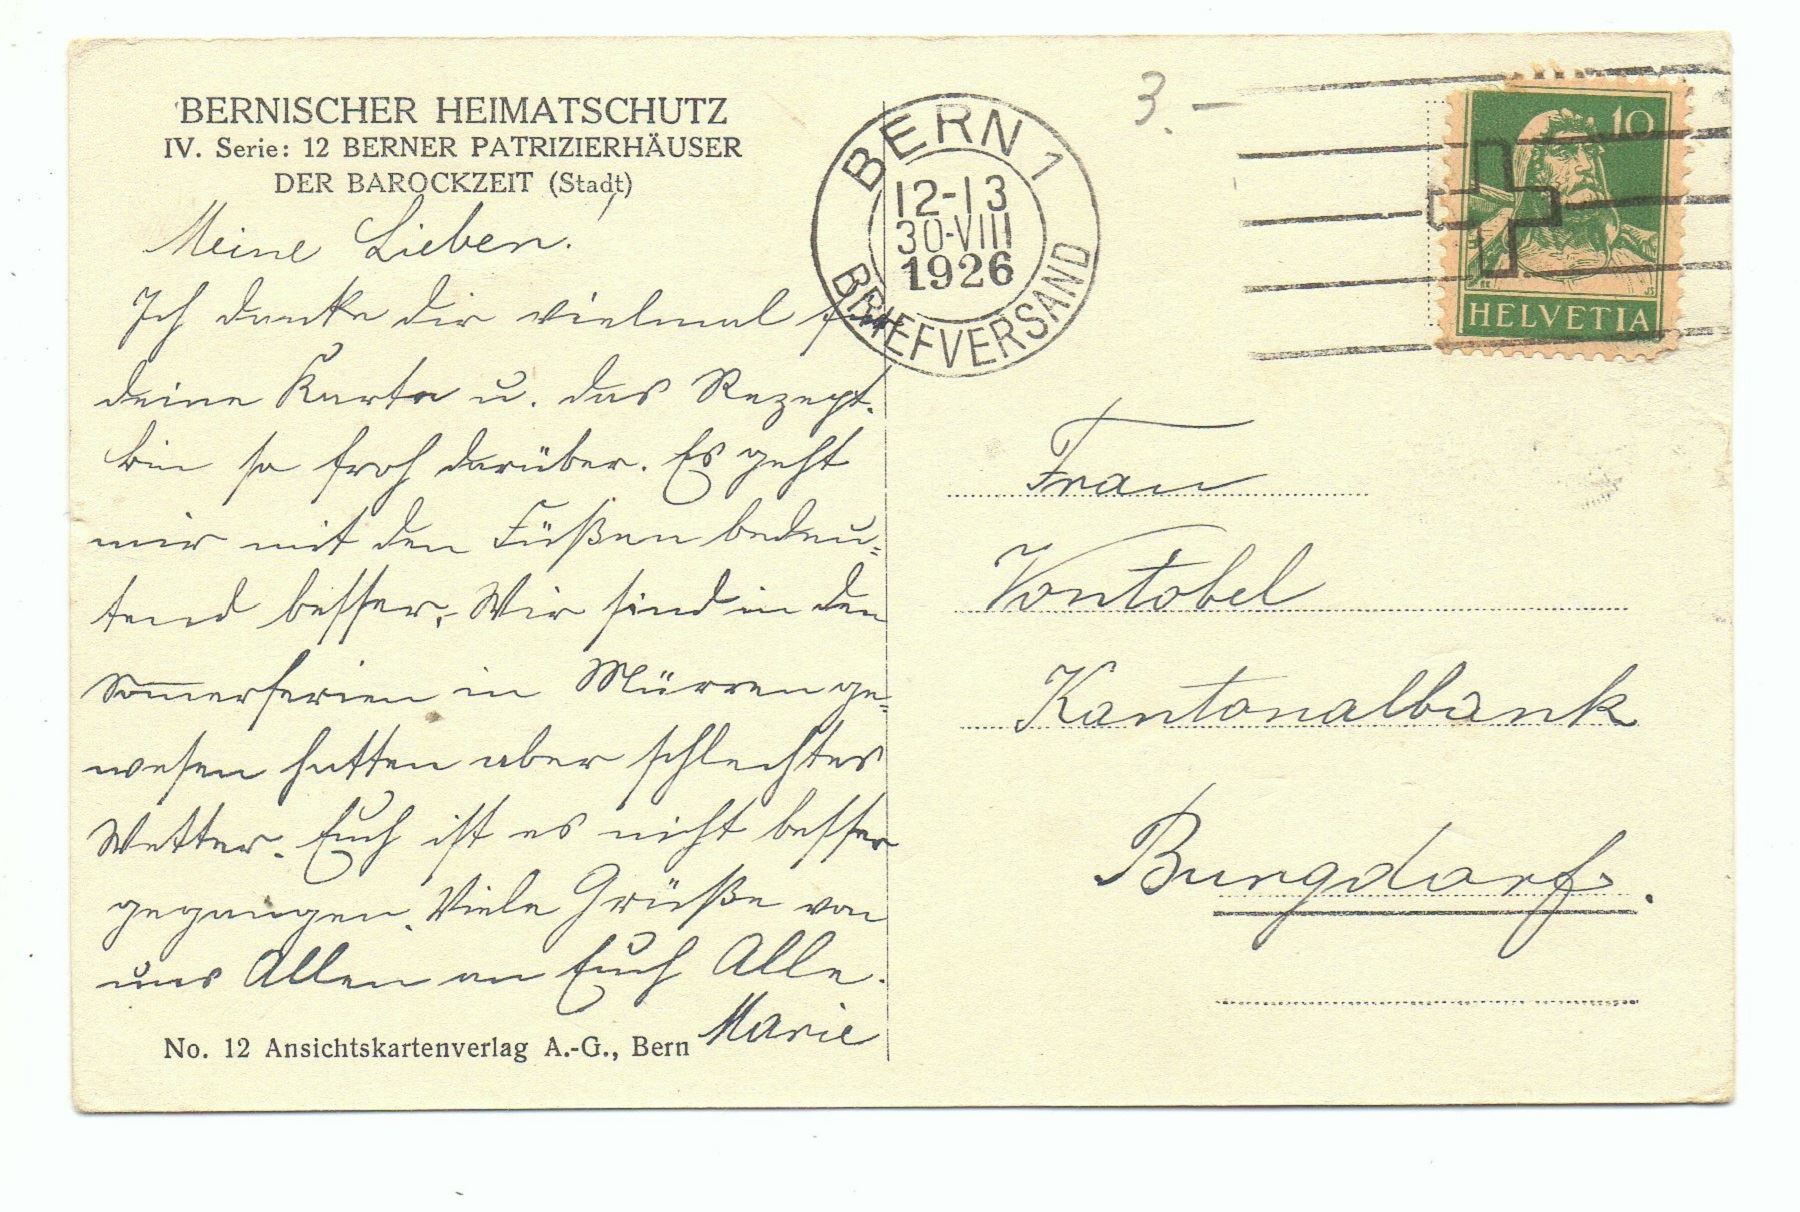 BERNISCHER HEIMATSCHUTZ
IV. Serie: 12 BERNER PATRIZIERHÄUSER
DER BAROCKZEIT (Stadt)
Meine Lieben!
Ich danke dir vielmal für
deine Karte u. das Rezept.
bin so froh darüber. Es geht
mir mit den Füßen bedeu=
tend besser. Wir sind in den
Sommerferien in Mürren ge=
wesen hatten aber schlechtes
Wetter. Euch ist es nicht besser
gegangen. Viele Grüße von
uns Allen an Euch Alle.
Marie
No. 12 Ansichtskartenverlag A.-G., Bern
BERN 1
12-13
30-VIII
1926
BRIEFVERSAND
3.-
10
HELVETIA
Frau
Vontobel
Kantonalbank
Burgdorf.